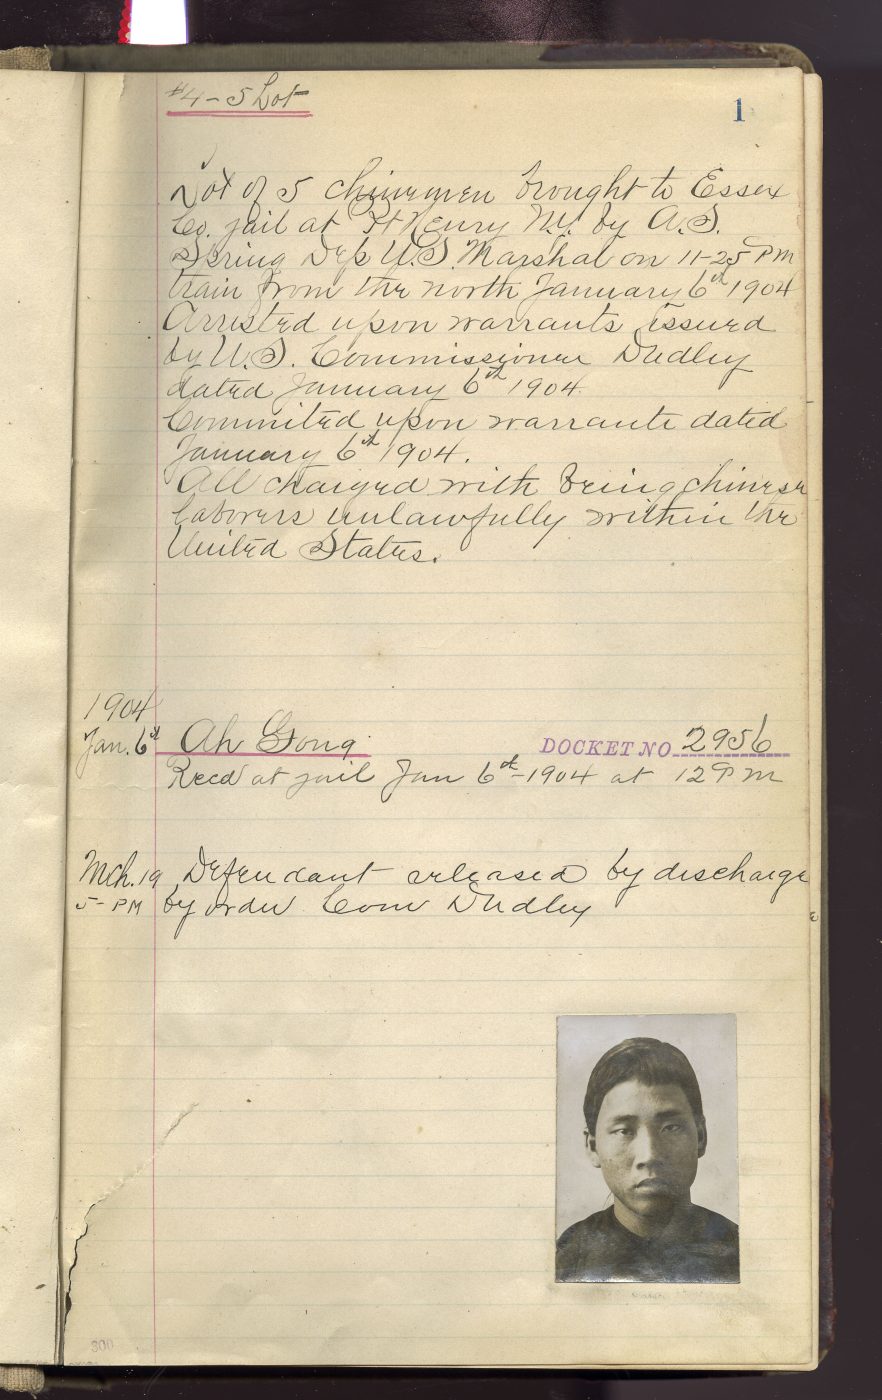 #4-5 Lot
1
Lot of 5 Chinemen brought to Essex
Co. jail at Pt Henry N.Y. by A.S.
Spring Dep U.S. Marshal on 11-25 PM
train from the north January 6th 1904
Arrested upon warrants issued
by U.S. Commissioner Dudley
dated January 6th 1904.
Commited upon warrants dated
January 6th 1904.
All charged with being chinese
laborers unlawfully within the
United States.
1904
Jan. 6th Ah Gong DOCKET NO 2956
Recd at jail Jan 6th-1904 at 12 P m
Mch. 19 Defendant released by discharge
5- PM by order Com Dudley
300